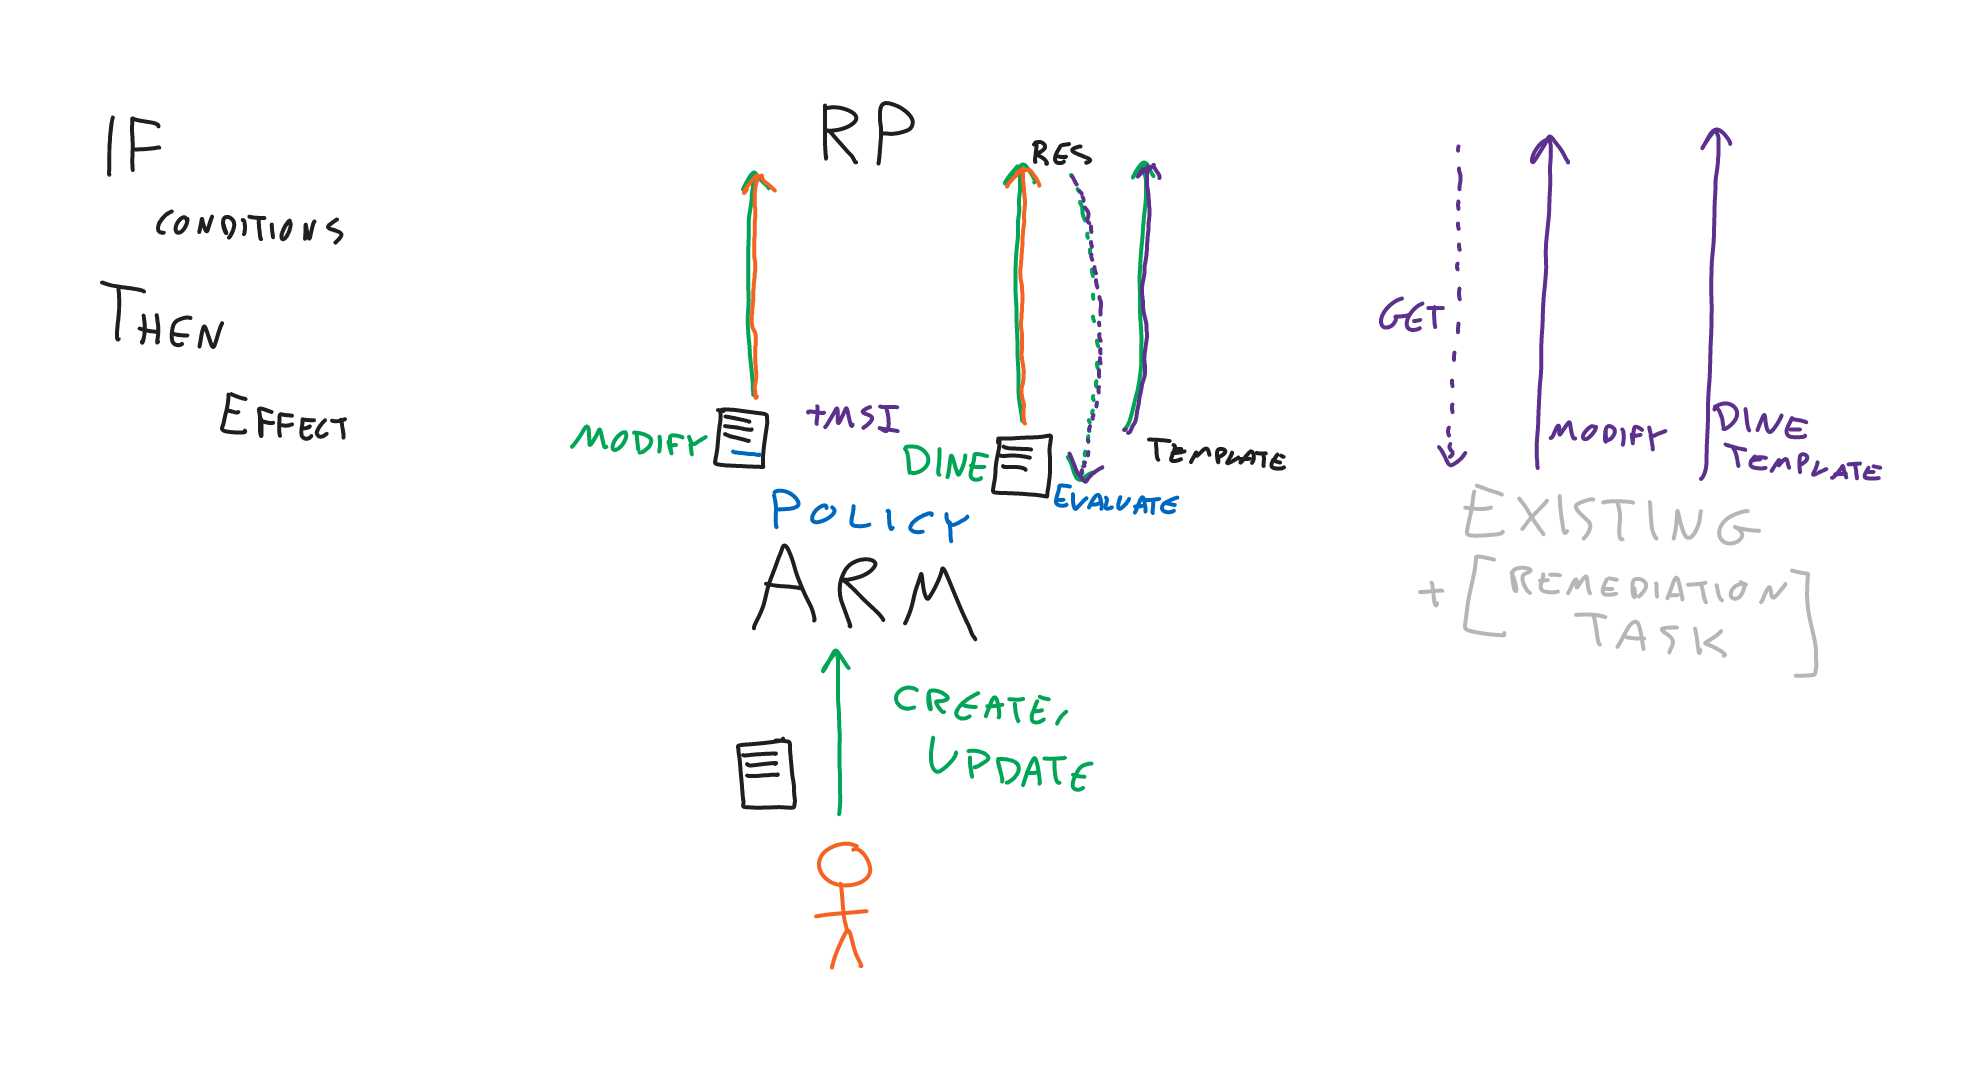 IF
CONDITIONS
THEN
EFFECT
RP
RES
MODIFY
+MSI
DINE
TEMPLATE
EVALUATE
POLICY
ARM
CREATE,
UPDATE
GET
MODIFY
DINE
TEMPLATE
EXISTING
+ [REMEDIATION
TASK]